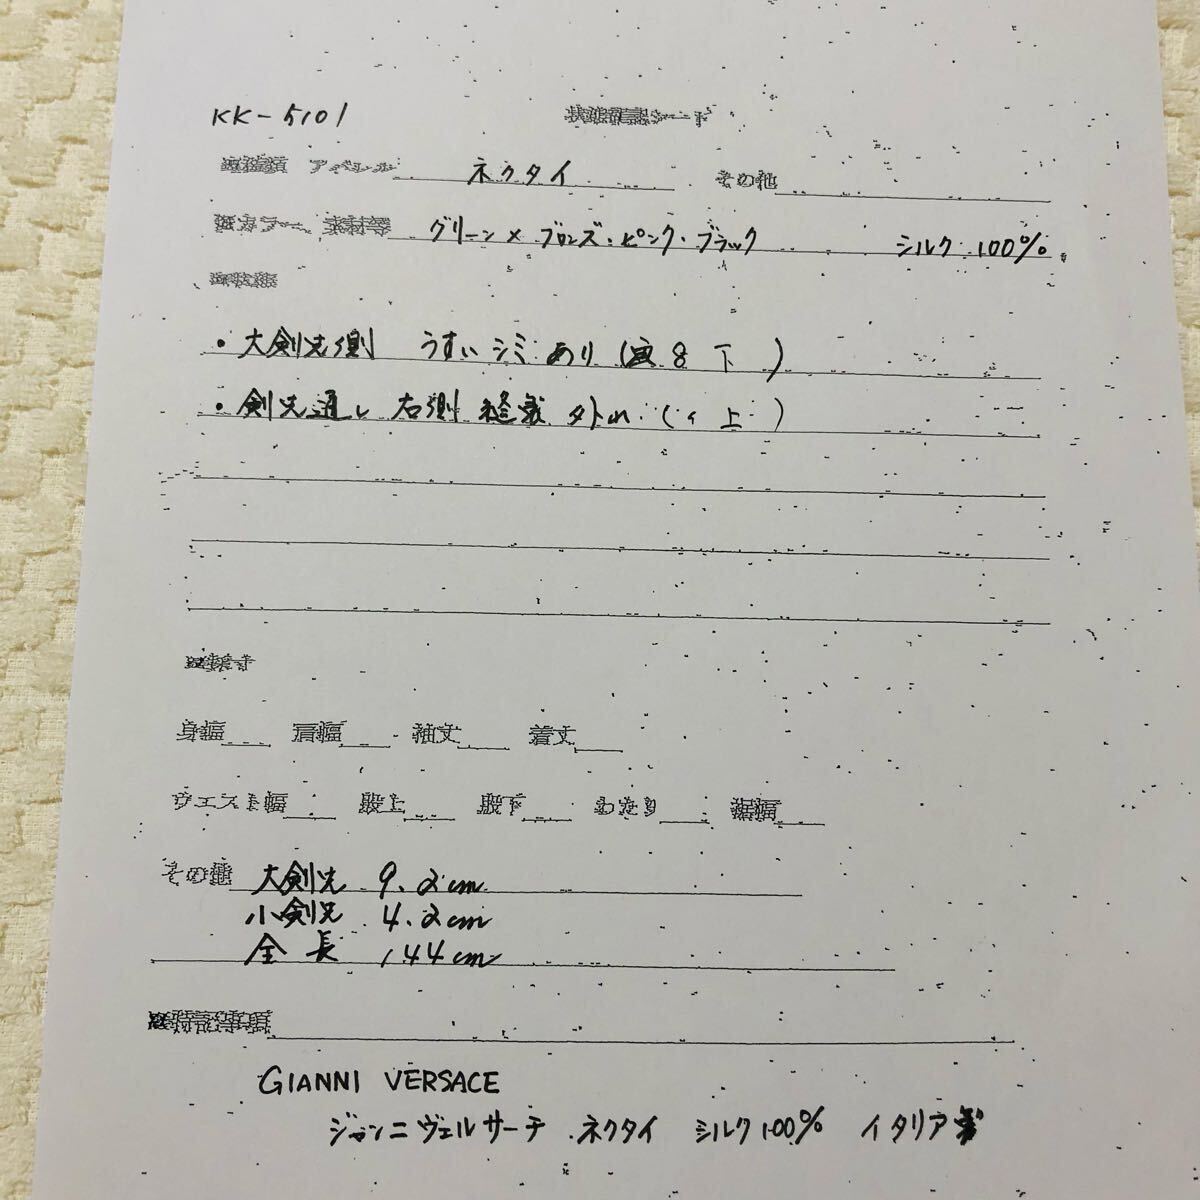 KK-5101
アパレル ネクタイ その他
カラー、素材等 グリーン×ブロンズ・ピンク・ブラック シルク100%
・大剣先側 うすいシミあり(写8下)
・剣先通し右側縫製外れ(〃上)
身幅 肩幅 袖丈 着丈
ウエスト幅 股上 股下 わたり 裾幅
その他 大剣先 9.2cm
小剣先 4.2cm
全長 144cm
特記事項
GIANNI VERSACE
ジャンニヴェルサーチ ネクタイ シルク100% イタリア製